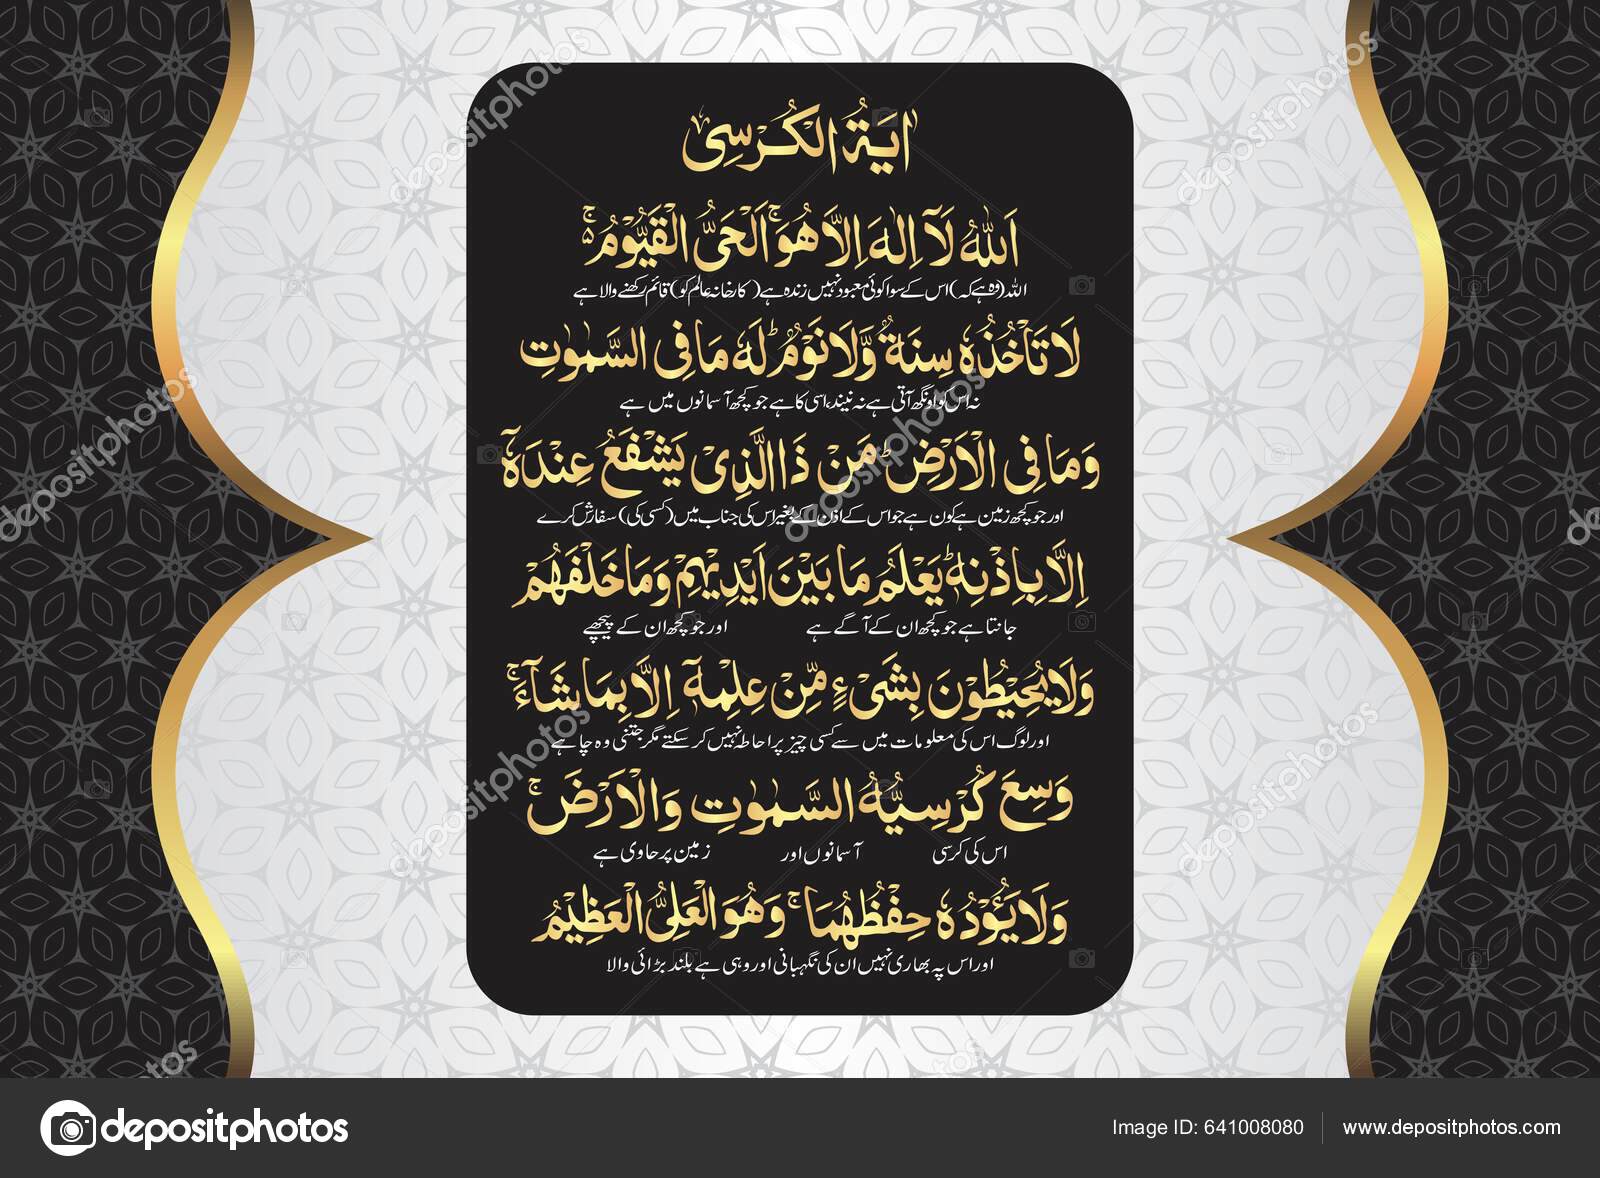 اٰیَةُ الْکُرْسِیْ
اَللّٰهُ لَاۤ اِلٰهَ اِلَّا هُوَ ۚ اَلْحَیُّ الْقَیُّوْمُ ۚ۬
اللہ (وہ ہے کہ) اس کے سوا کوئی معبود نہیں زندہ ہے (کارخانہ عالم کو) قائم رکھنے والا ہے
لَا تَاْخُذُهٗ سِنَةٌ وَّلَا نَوْمٌ ؕ لَهٗ مَا فِی السَّمٰوٰتِ
نہ اس کو اونگھ آتی ہے نہ نیند، اسی کا ہے جو کچھ آسمانوں میں ہے
وَمَا فِی الْاَرْضِ ؕ مَنْ ذَا الَّذِیْ یَشْفَعُ عِنْدَهٗۤ
اور جو کچھ زمین ہے کون ہے جو اس کے اذن کے بغیر اس کی جناب میں (کسی کی) سفارش کرے
اِلَّا بِاِذْنِهٖ ؕ یَعْلَمُ مَا بَیْنَ اَیْدِیْهِمْ وَمَا خَلْفَهُمْ
جانتا ہے جو کچھ ان کے آگے ہے اور جو کچھ ان کے پیچھے
وَلَا یُحِیْطُوْنَ بِشَیْءٍ مِّنْ عِلْمِهٖۤ اِلَّا بِمَا شَآءَ ۚ
اور لوگ اس کی معلومات میں سے کسی چیز پر احاطہ نہیں کر سکتے مگر جتنی وہ چاہے
وَسِعَ کُرْسِیُّهُ السَّمٰوٰتِ وَالْاَرْضَ ۚ
اس کی کرسی آسمانوں اور زمین پر حاوی ہے
وَلَا یَـُٔوْدُهٗ حِفْظُهُمَا ۚ وَهُوَ الْعَلِیُّ الْعَظِیْمُ
اور اس پہ بھاری نہیں ان کی نگہبانی اور وہی ہے بلند بڑائی والا
depositphotos
Image ID: 641008080
www.depositphotos.com